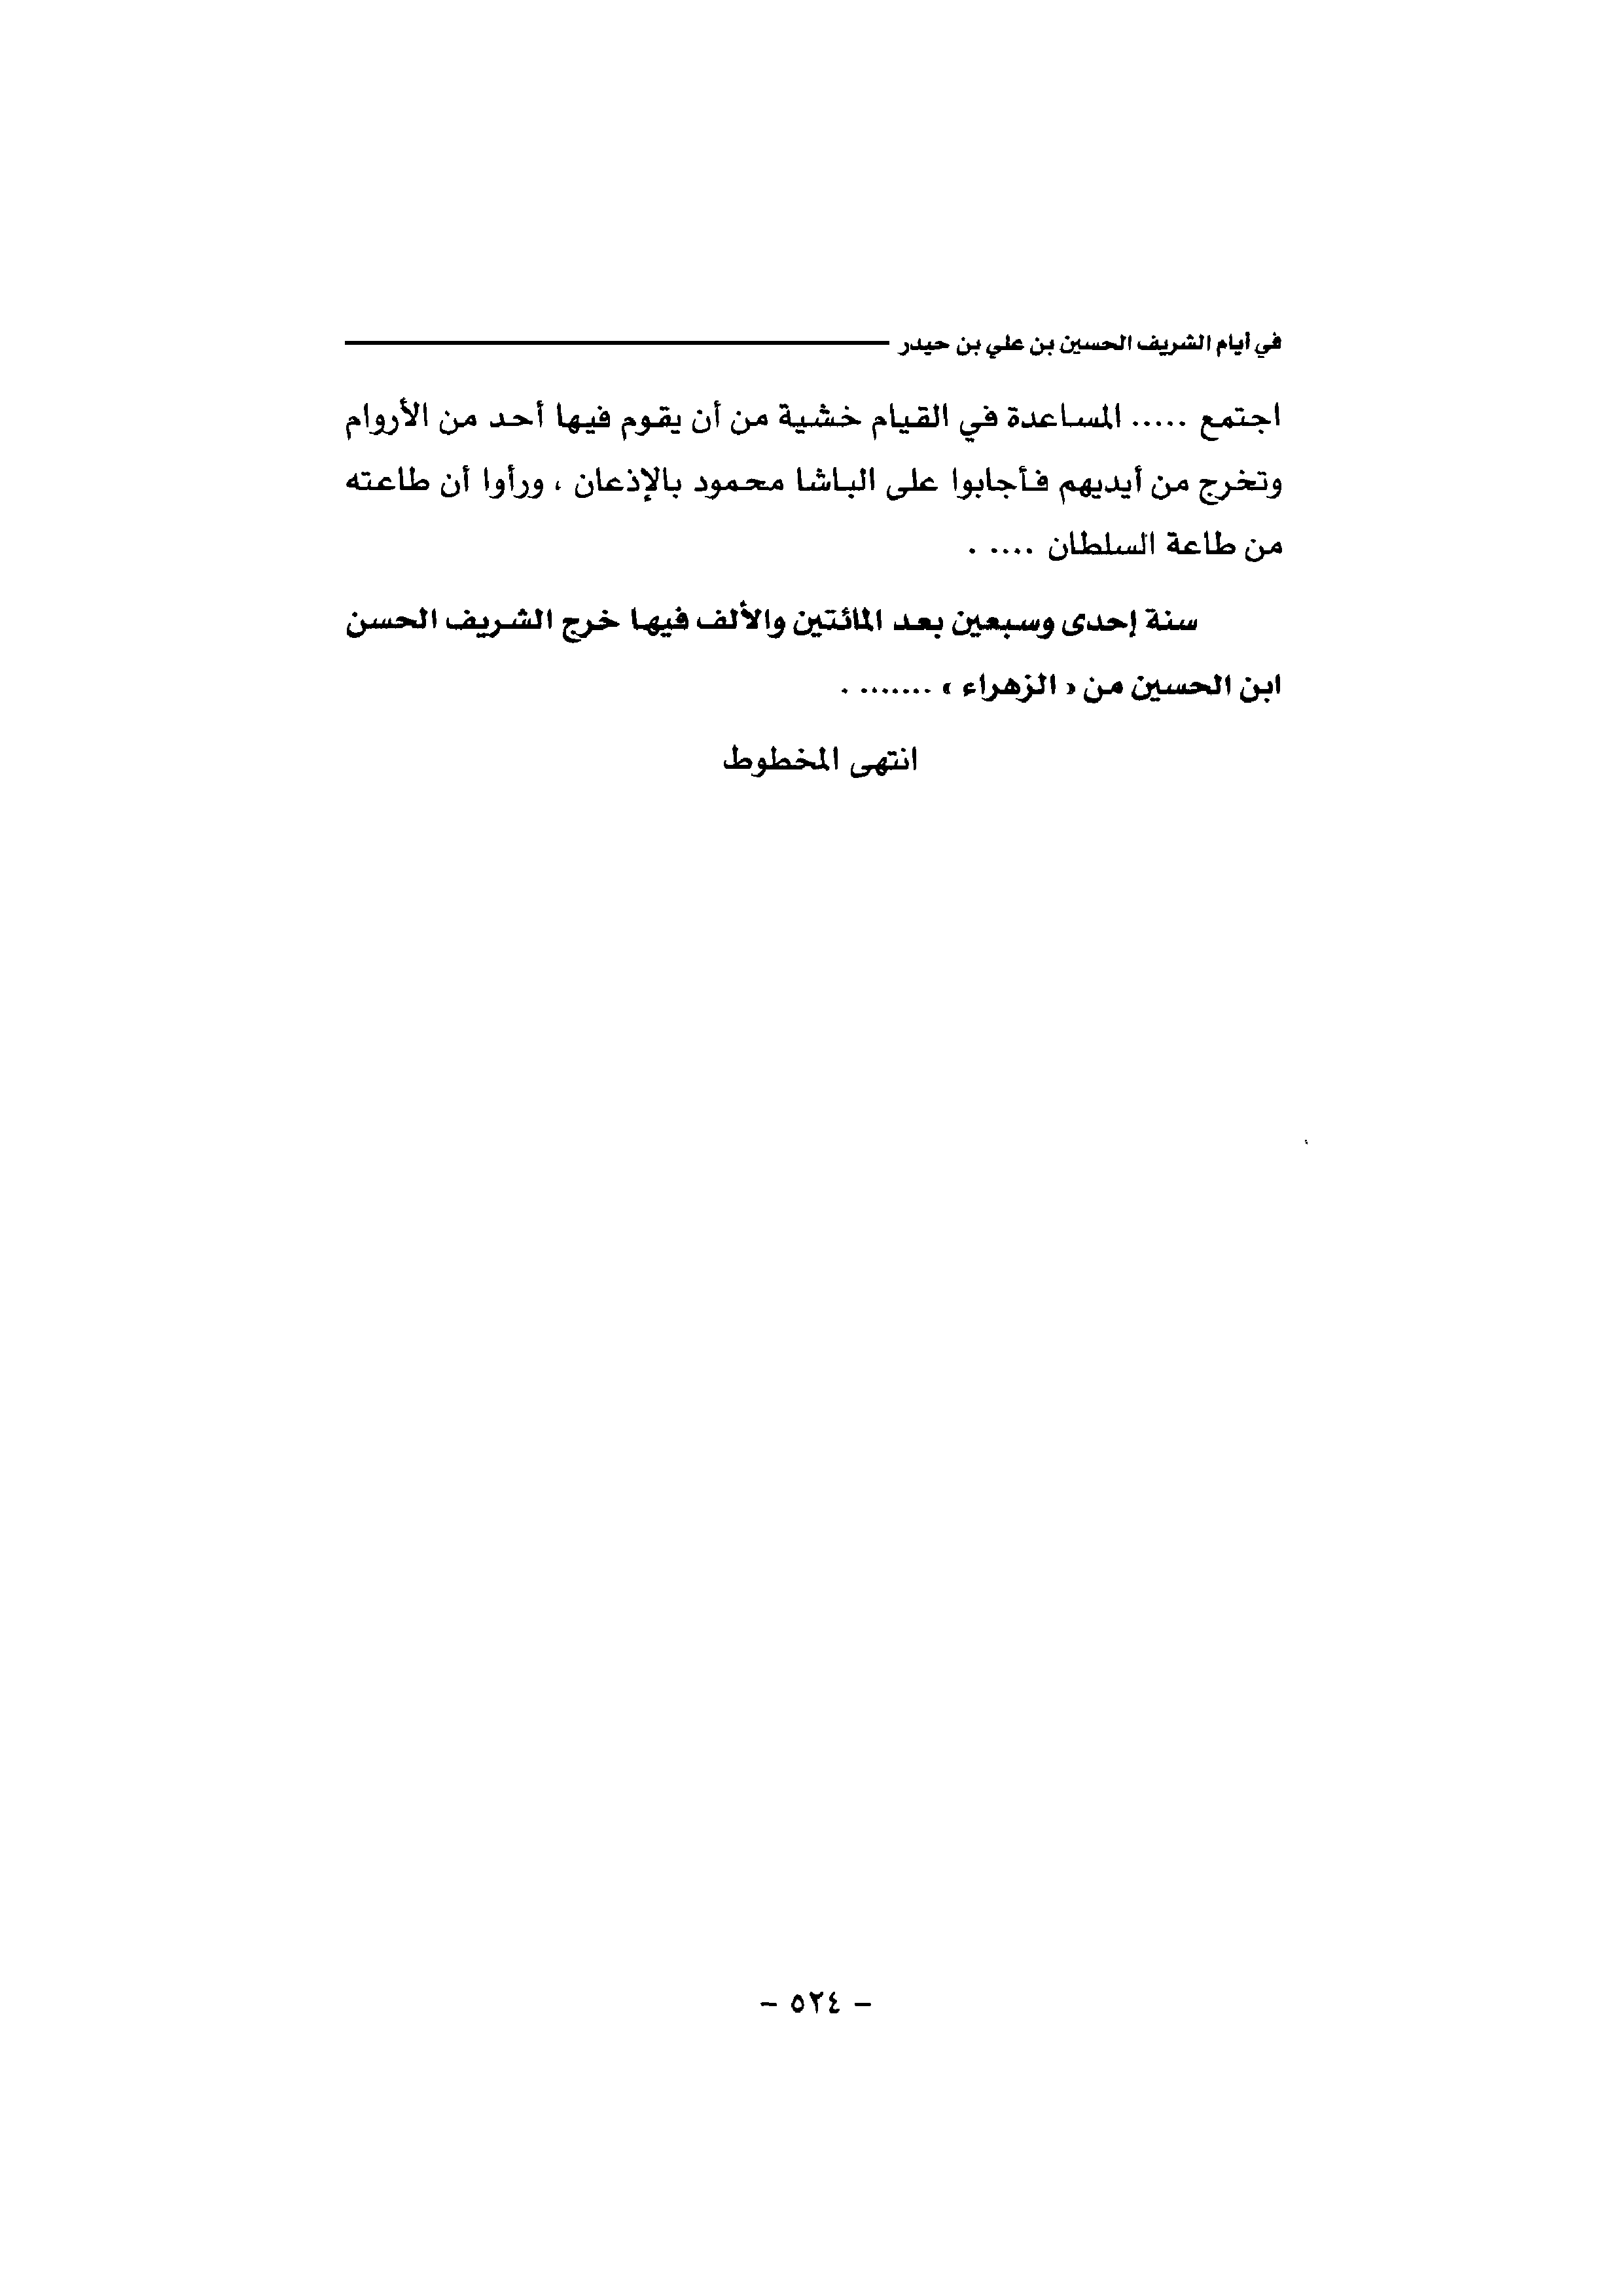 في أيام الشريف الحسين بن علي بن حيدر
اجتمع ..... المساعدة في القيام خشية من أن يقوم فيها أحد من الأروام
وتخرج من أيديهم فأجابوا على الباشا محمود بالإذعان ، ورأوا أن طاعته
من طاعة السلطان .... .
سنة إحدى وسبعين بعد المائتين والألف فيها خرج الشريف الحسن
ابن الحسين من « الزهراء » ....... .
انتهى المخطوط
- ٥٢٤ -